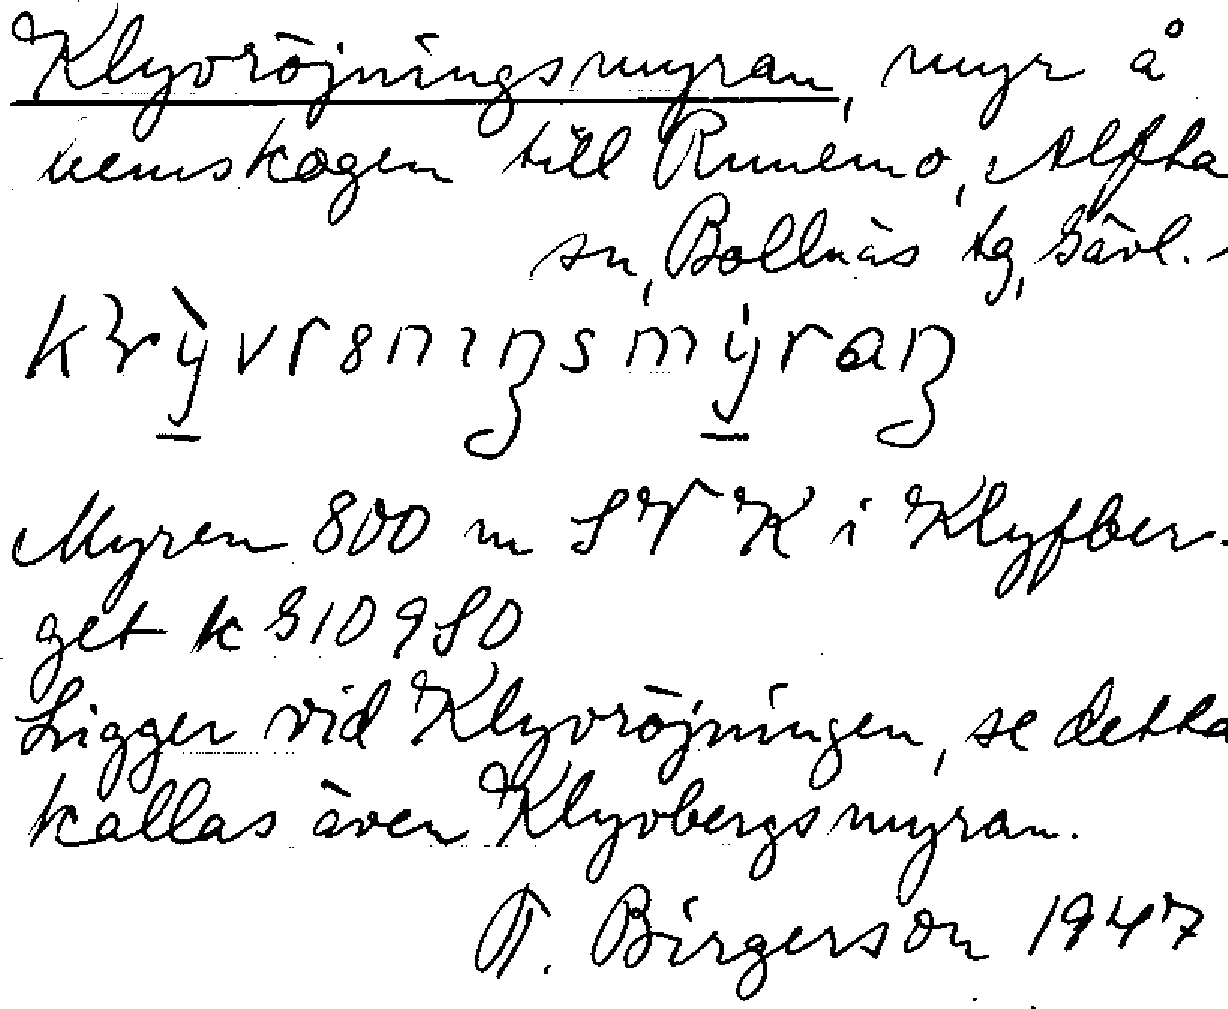 Klyvröjningsmyran, myr å
hemskogen till Runemo, Alfta
sn, Bollnäs tg, Gävl.
Myren 800 m SV K i Klyfber-
get k G10980
Ligger vid Klyvröjningen, se detta
kallas även Klyvbergsmyran.
T. Birgerson 1947